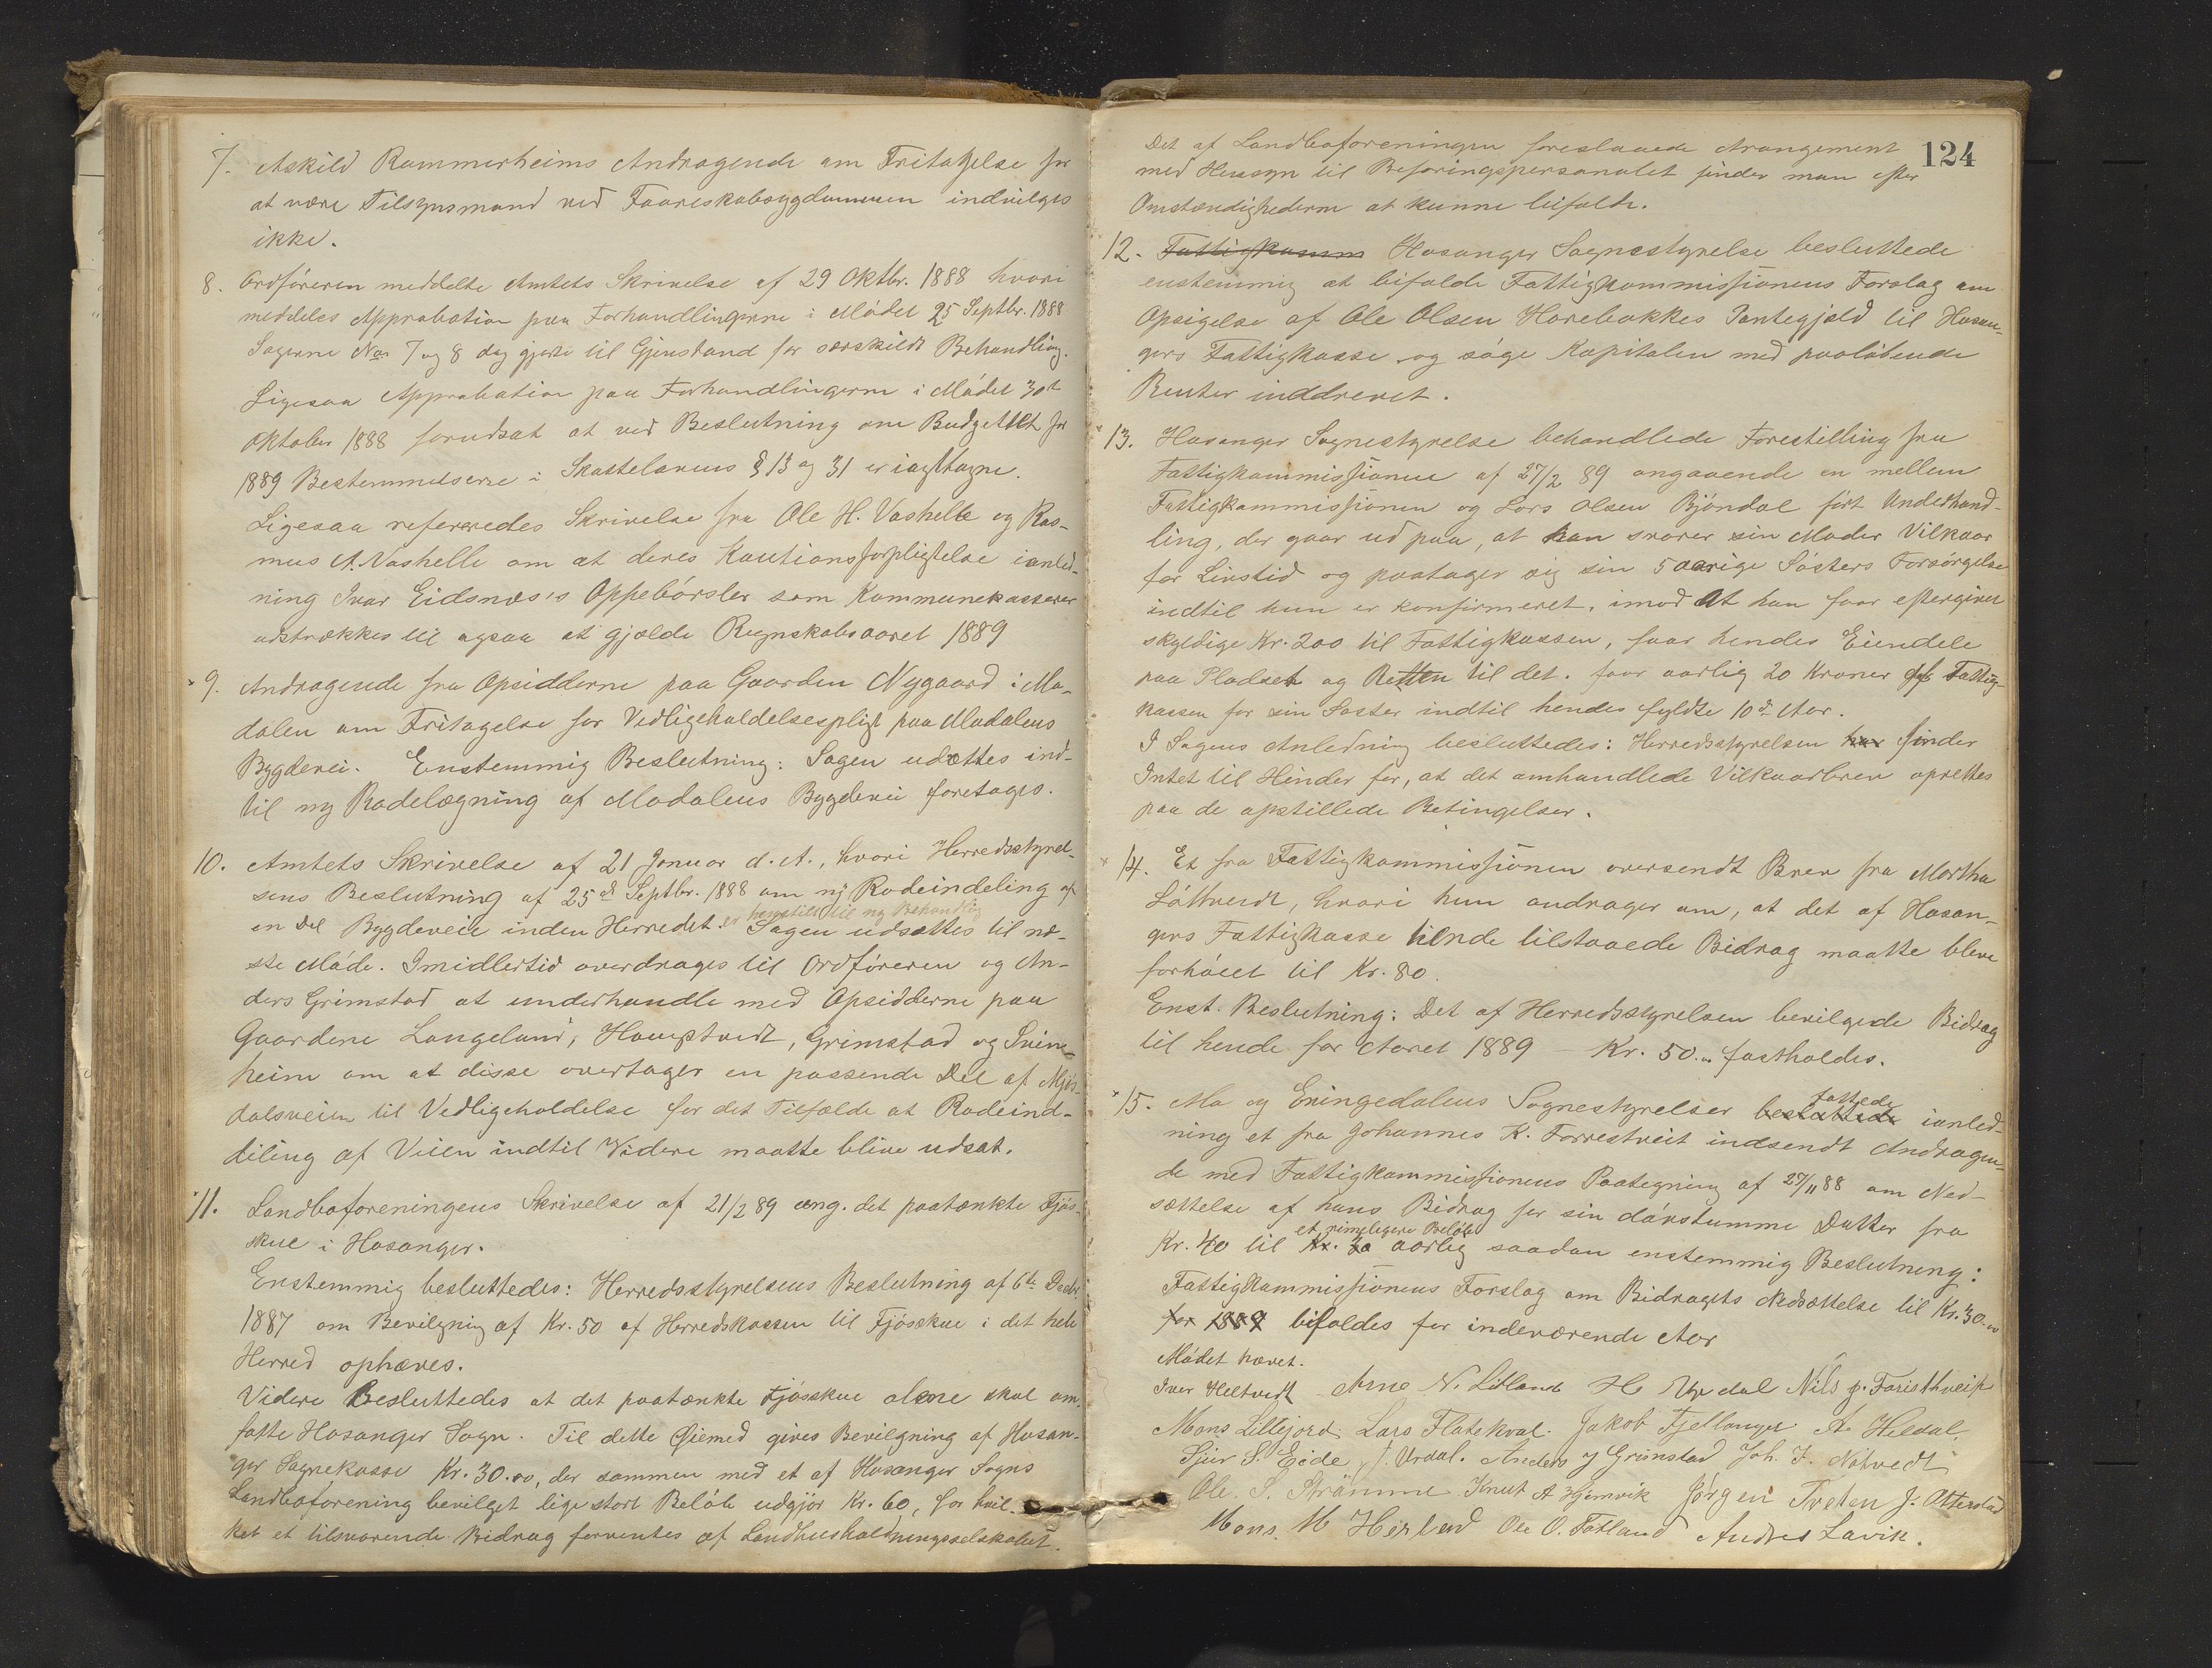 7. Askild Rammerheims Andragende om Fritagelse for
at være Tilsynsmand ved Faareskabsygdommen indvilges
ikke.
8. Ordføreren meddelte Amtets Skrivelse af 29 Oktbr. 1888 hvori
meddeles Approbation paa Forhandlingerne i Mödet 25 Septbr. 1888
Sagerne No 7 og 8 dog gjorte til Gjenstand for særskildt Behandling.
Ligesaa Approbation paa Forhandlingerne i Mödet 30te
Oktober 1888 forudsat at ved Beslutning om Budgettet for
1889 Bestemmelserne i Skattelovens § 13 og 31 er iagttagne.
Ligesaa refereredes Skrivelse fra Ole H. Vashelle og Ras-
mus A. Vashelle om at deres Kautionsforpligtelse ianled-
ning Ivar Eidsnæs's Oppebörsler som Kommunekasserer
udstrækkes til ogsaa at gjælde Regnskabsaaret 1889
9. Andragende fra Opsidderne paa Gaarden Nygaard i Mo-
dalen om Fritagelse for Vedligeholdelsespligt paa Modalens
Bygdevei. Enstemmig Beslutning: Sagen udsættes ind-
til ny Rodelægning af Modalens Bygdevei foretages.
10. Amtets Skrivelse af 21 Januar d. A., hvori Herredsstyrel-
sens Beslutning af 25de Septbr. 1888 om ny Rodeindeling af
er henstilt til ny Behandlig
en Del Bygdeveie inden Herredet. Sagen udsættes til næ-
ste Möde. Imidlertid overdrages til Ordföreren og An-
ders Grimstad at underhandle med Opsidderne paa
Gaardene Langeland, Hougstvedt, Grimstad og Svine-
heim om at disse overtager en passende Del af Mjös-
dalsveien til Vedligeholdelse for det Tilfælde at Rodeind-
diling af Veien indtil Videre maatte blive udsat.
11. Landboforeningens Skrivelse af 21/2 89 ang. det paatænkte Fjös-
skue i Hosanger.
Enstemmig besluttedes: Herredsstyrelsens Beslutning af 6te Decbr
1887 om Bevilgning af Kr. 50 af Herredskassen til Fjösskue i det hele
Herred ophæves.
Videre Besluttedes at det paatænkte Fjösskue alene skal om-
fatte Hosanger Sogn. Til dette Øiemed gives Bevilgning af Hosan-
ger Sognekasse Kr. 30.00, der sammen med et af Hosanger Sogns
Landboforening bevilget lige stort Belöb udgjör Kr. 60, for hvil-
ket et tilsvarende Bidrag forventes af Landhusholdningsselskabet.
124
Det af Landboforeningen foreslaaede Arangement
med Hensyn til Beforingspersonalet finder man efter
Omstændighederne at kunne bifalde.
12. Fattigkomm Hosanger Sognestyrelse besluttede
enstemmig at bifalde Fattigkommissionens Forslag om
Opsigelse af Ole Olsen Horebakkes Pantegjæld til Hosan-
gers Fattigkasse og söge Kapitalen med paalöbende
Renter inddrevet.
13. Hosanger Sognestyrelse behandlede Forestilling fra
Fattigkommissionen af 27/2 89 angaaende en mellem
Fattigkommissionen og Lars Olsen Bjöndal fört Underhand-
ling, der gaar ud paa, at han svarer sin Moder Vilkaar
for Livstid og paatager sig sin 5 aarige Sösters Forsörgelse
indtil hun er konfirmeret, imod at han faar eftergiven
skyldige Kr. 200 til Fattigkassen, faar hendes Eiendele
paa Pladset og Retten til det. faar aarlig 20 Kroner af Fattig-
kassen for sin Söster indtil hendes fyldte 10de Aar.
I Sagens Anledning besluttedes: Herredsstyrelsen har finder
Intet til Hinder for, at det omhandlede Vilkaarbrev oprettes
paa de opstillede Betingelser.
14. Et fra Fattigkommissionen oversendt Brev fra Martha
Låttveidt, hvori hun andrager om, at det af Hosan-
gers Fattigkasse hende tilstaaede Bidrag maatte bleve
forhöiet til Kr. 80.
Enst. Beslutning: Det af Herredsstyrelsen bevilgede Bidrag
til hende for Aaret 1889 – Kr. 50.00 fastholdes.
15. Mo og Eningedalens Sognestyrelser besluttede fattede ianled-
ning et fra Johannes K. Forrestveit indsendt Andragen-
de med Fattigkommissionens Paategning af 27/11 88 om Ned-
sættelse af hans Bidrag for sin dövstumme Datter fra
et rimeligere Belöb
Kr. 40 til Kr. 30 aarlig saadan enstemmig Beslutning:
Fattigkommissionens Forslag om Bidragets Nedsættelse til Kr. 30.00
for 1889 bifaldes for indeværende Aar
Mödet hævet.
Iver Heltvedt Arne N. Litland H Urdal Nils J. Faristhveit
Mons Lillejord Lars Flatekval. Jakob Fjellanger A Heldal,
Sjur S. Eide J. Urdal. Anders J Grimstad Joh. J. Nåtvedt
Ole. S. Strömme Knut A Hjemvik Jörgen Tveten J. Otterstad
Mons. M Herland Ole O. Fatland Andres Lavik.